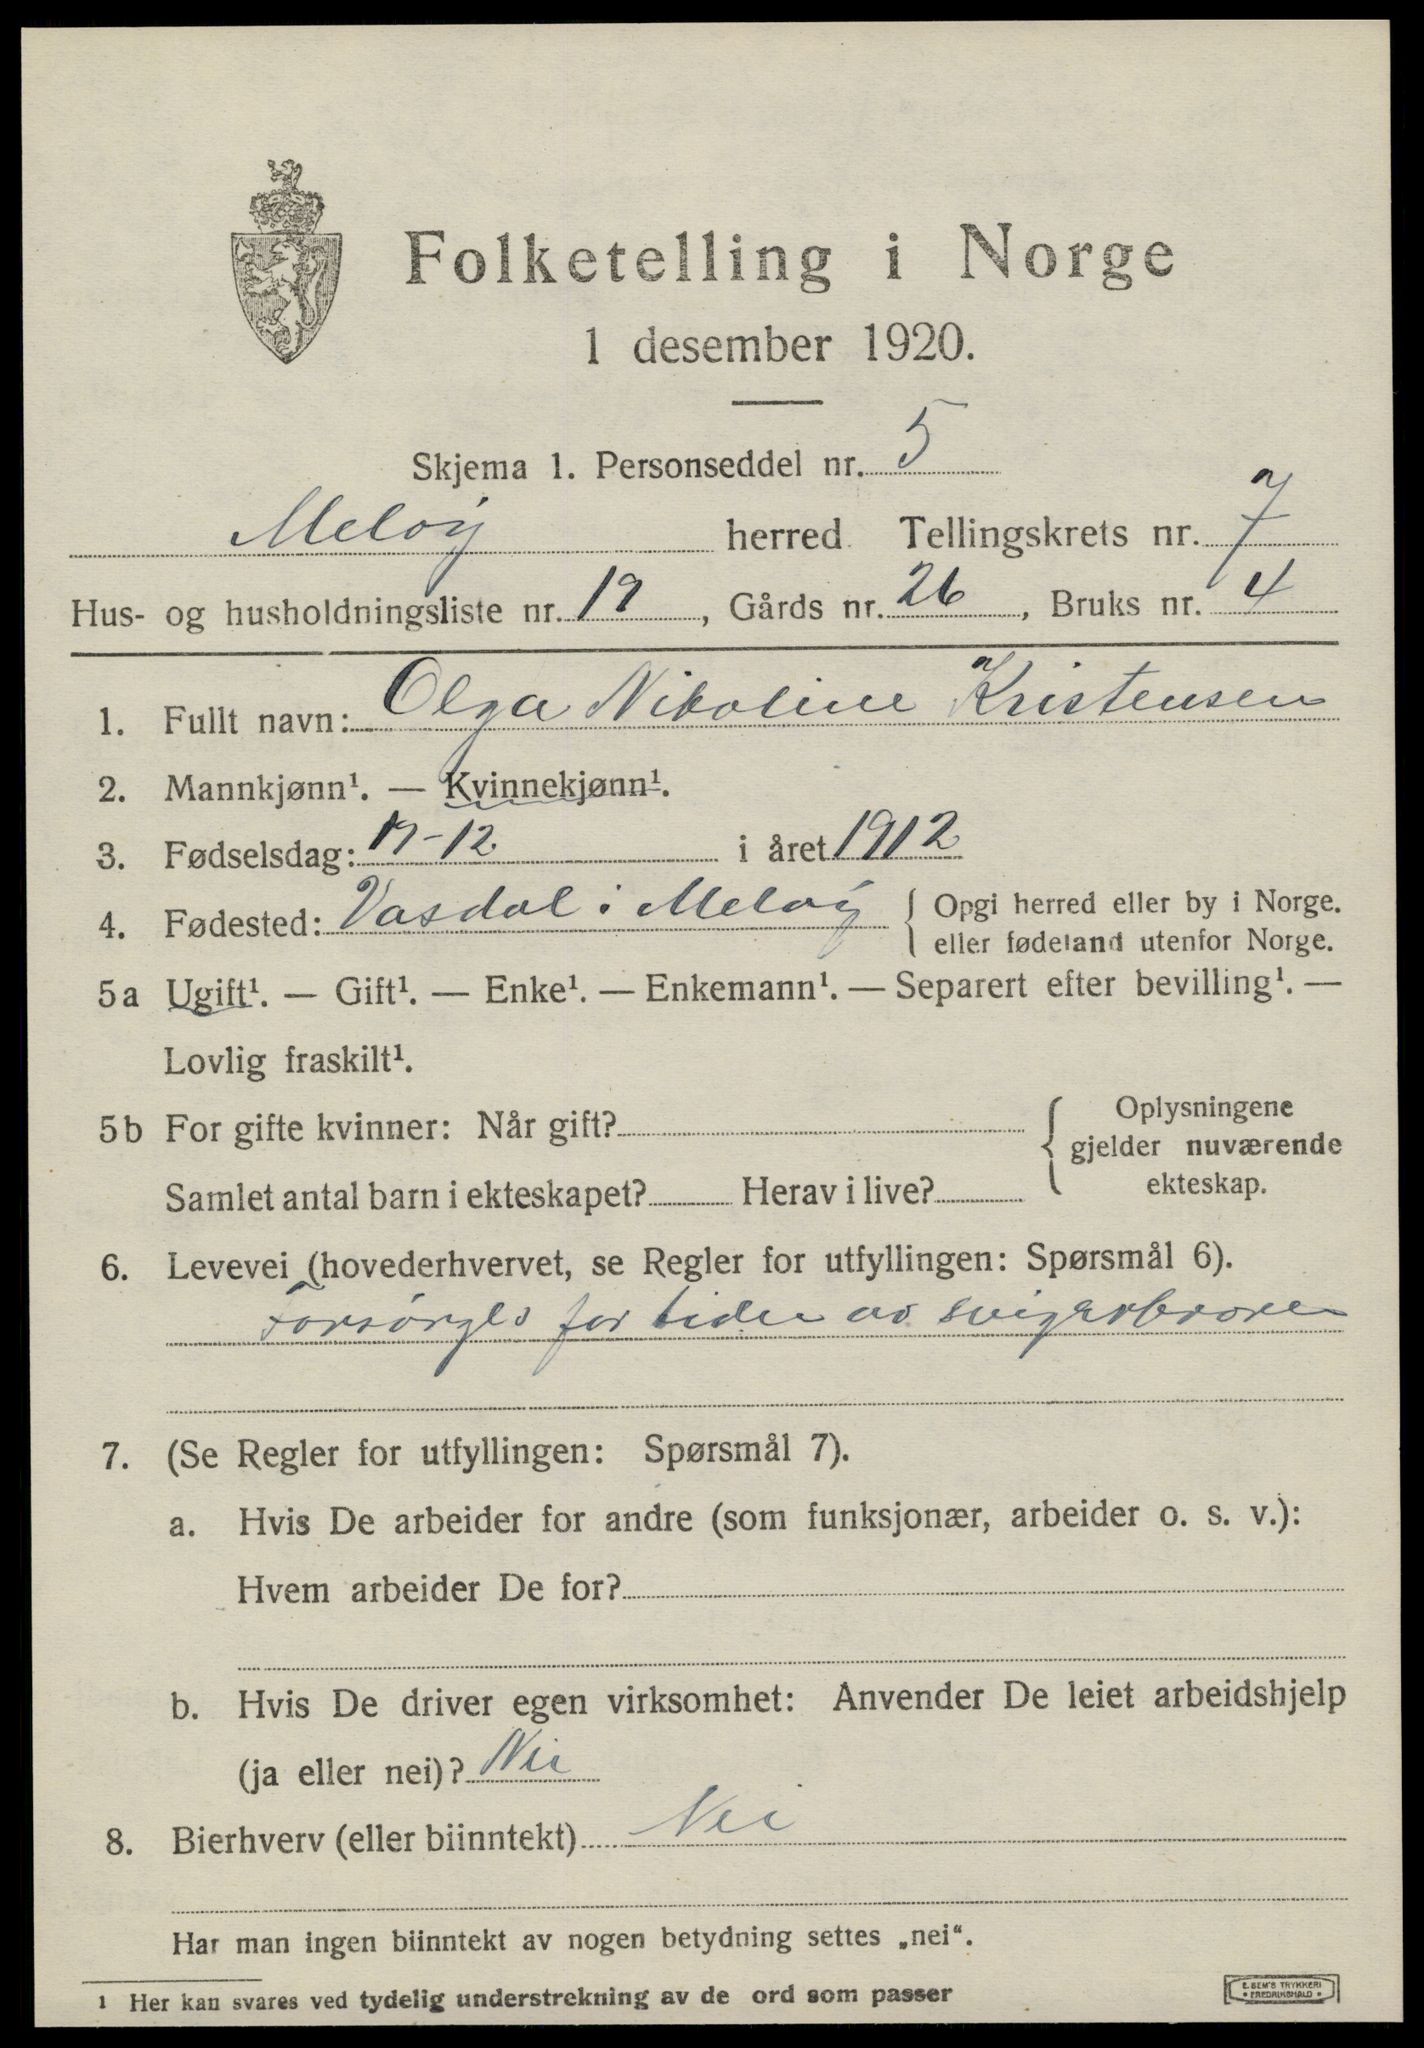 Folketelling i Norge
1 desember 1920.
Skjema 1. Personseddel nr. 5
Meløy herred Tellingskrets nr. 7
Hus- og husholdningsliste nr. 19, Gårds nr. 26, Bruks nr. 4
1. Fullt navn: Olga Nikoline Kristensen
2. Mannkjønn¹. — Kvinnekjønn¹.
3. Fødselsdag: 19-12 i året 1912
4. Fødested: Vasdal i Meløy { Opgi herred eller by i Norge.
eller fødeland utenfor Norge.
5a Ugift¹. — Gift¹. — Enke¹. — Enkemann¹. — Separert efter bevilling¹. —
Lovlig fraskilt¹.
5b For gifte kvinner: Når gift? { Oplysningene
gjelder nuværende
Samlet antal barn i ekteskapet? Herav i live? ekteskap.
6. Levevei (hovederhvervet, se Regler for utfyllingen: Spørsmål 6).
Forsørges for tiden av svigerbroren
7. (Se Regler for utfyllingen: Spørsmål 7).
a. Hvis De arbeider for andre (som funksjonær, arbeider o. s. v.):
Hvem arbeider De for?
b. Hvis De driver egen virksomhet: Anvender De leiet arbeidshjelp
(ja eller nei)? Nei
8. Bierhverv (eller biinntekt) Nei
Har man ingen biinntekt av nogen betydning settes „nei“.
1 Her kan svares ved tydelig understrekning av de ord som passer
E. SEM'S TRYKKERI
• FREDRIKSHALD •